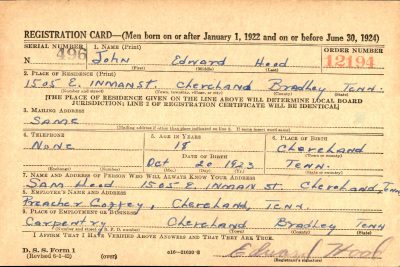 REGISTRATION CARD—(Men born on or after January 1, 1922 and on or before June 30, 1924)
SERIAL NUMBER 1. NAME (Print) ORDER NUMBER
N 496 John Edward Hood 12194
(First) (Middle) (Last)
2. PLACE OF RESIDENCE (Print)
1505 E. INMAN St. Cleveland Bradley Tenn.
(Number and street) (Town, township, village, or city) (County) (State)
[THE PLACE OF RESIDENCE GIVEN ON THE LINE ABOVE WILL DETERMINE LOCAL BOARD
JURISDICTION; LINE 2 OF REGISTRATION CERTIFICATE WILL BE IDENTICAL]
3. MAILING ADDRESS
SAME
(Mailing address if other than place indicated on line 2. If same insert word same)
4. TELEPHONE 5. AGE IN YEARS 6. PLACE OF BIRTH
None 18 Cleveland
DATE OF BIRTH (Town or county)
Oct 20 1923 Tenn.
(Exchange) (Number) (Mo.) (Day) (Yr.) (State or country)
7. NAME AND ADDRESS OF PERSON WHO WILL ALWAYS KNOW YOUR ADDRESS
SAM Hood 1505 E. INMAN ST Cleveland, Tenn
8. EMPLOYER'S NAME AND ADDRESS
Preacher Coffey, Cleveland, Tenn.
9. PLACE OF EMPLOYMENT OR BUSINESS
Carpentry Cleveland Bradley Tenn
(Number and street or R. F. D. number) (Town) (County) (State)
I AFFIRM THAT I HAVE VERIFIED ABOVE ANSWERS AND THAT THEY ARE TRUE.
D. S. S. Form 1
(Revised 6-9-42) (over) Edward Hood
(Registrant's signature)